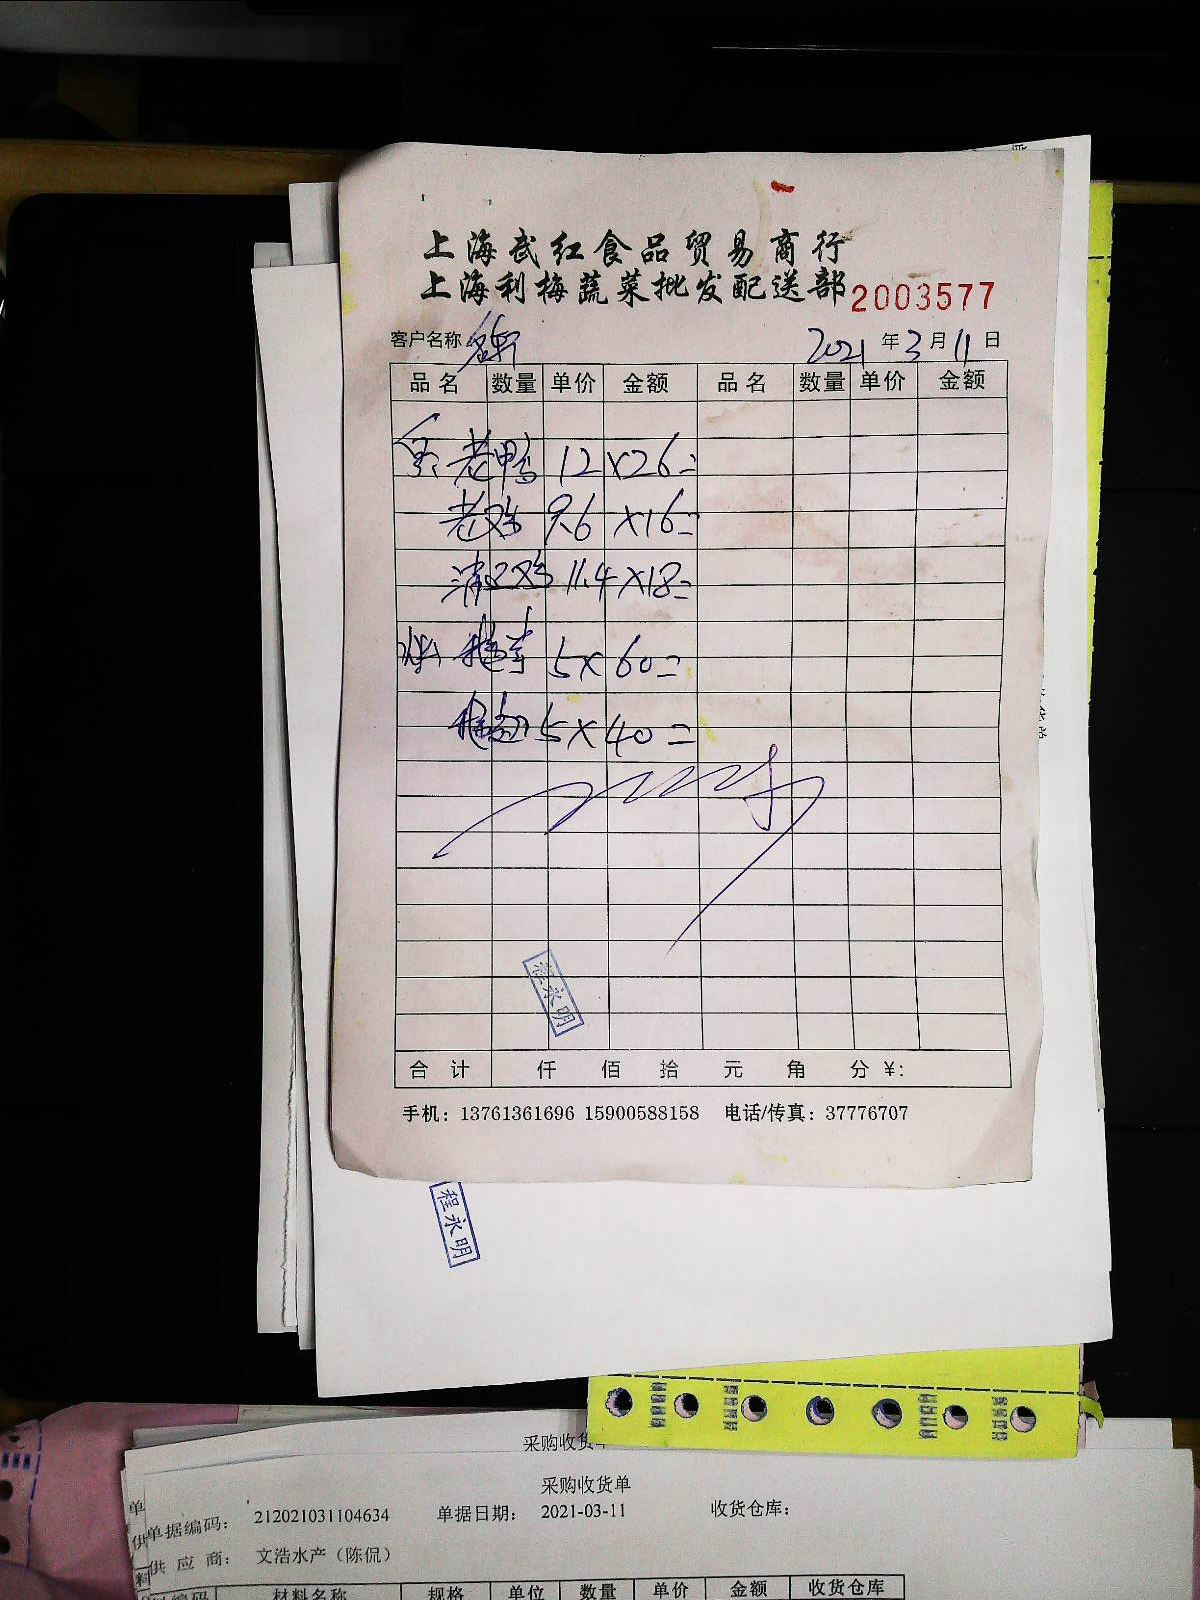 上海武红食品贸易商行
上海利梅蔬菜批发配送部 2003577
客户名称 2021 年 3 月 11 日
品名 数量 单价 金额 品名 数量 单价 金额
老鸭 12×26=
老鸡 9.6×16=
清远鸡 11.4×18=
5×60=
5×40=
程永明
合计 仟 佰 拾 元 角 分 ¥:
手机: 13761361696 15900588158 电话/传真: 37776707
程永明
采购收货单
采购收货单
单据编码: 212021031104634 单据日期: 2021-03-11 收货仓库:
供应商: 文浩水产(陈侃)
编码 材料名称 规格 单位 数量 单价 金额 收货仓库